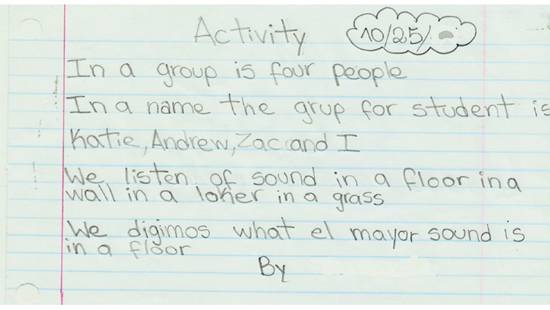 Activity
10/25/
In a group is four people
In a name the grup for student is
Katie, Andrew, Zac and I
We listen of sound in a floor in a
wall in a loker in a grass
We digimos what el mayor sound is
in a floor
By